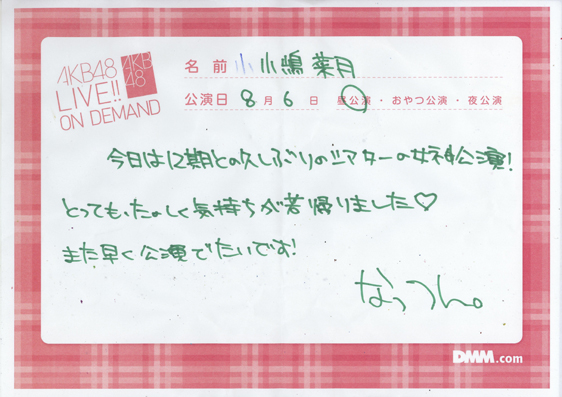 AKB48
LIVE!!
ON DEMAND
AKB
48
名前 小 小嶋菜月
公演日 8月6日 昼公演・おやつ公演・夜公演
今日は12期との久しぶりのシアターの女神公演!
とっても、たのしく気持ちが若帰りました♡
また早く公演でたいです!
なっつん。
DMM.com